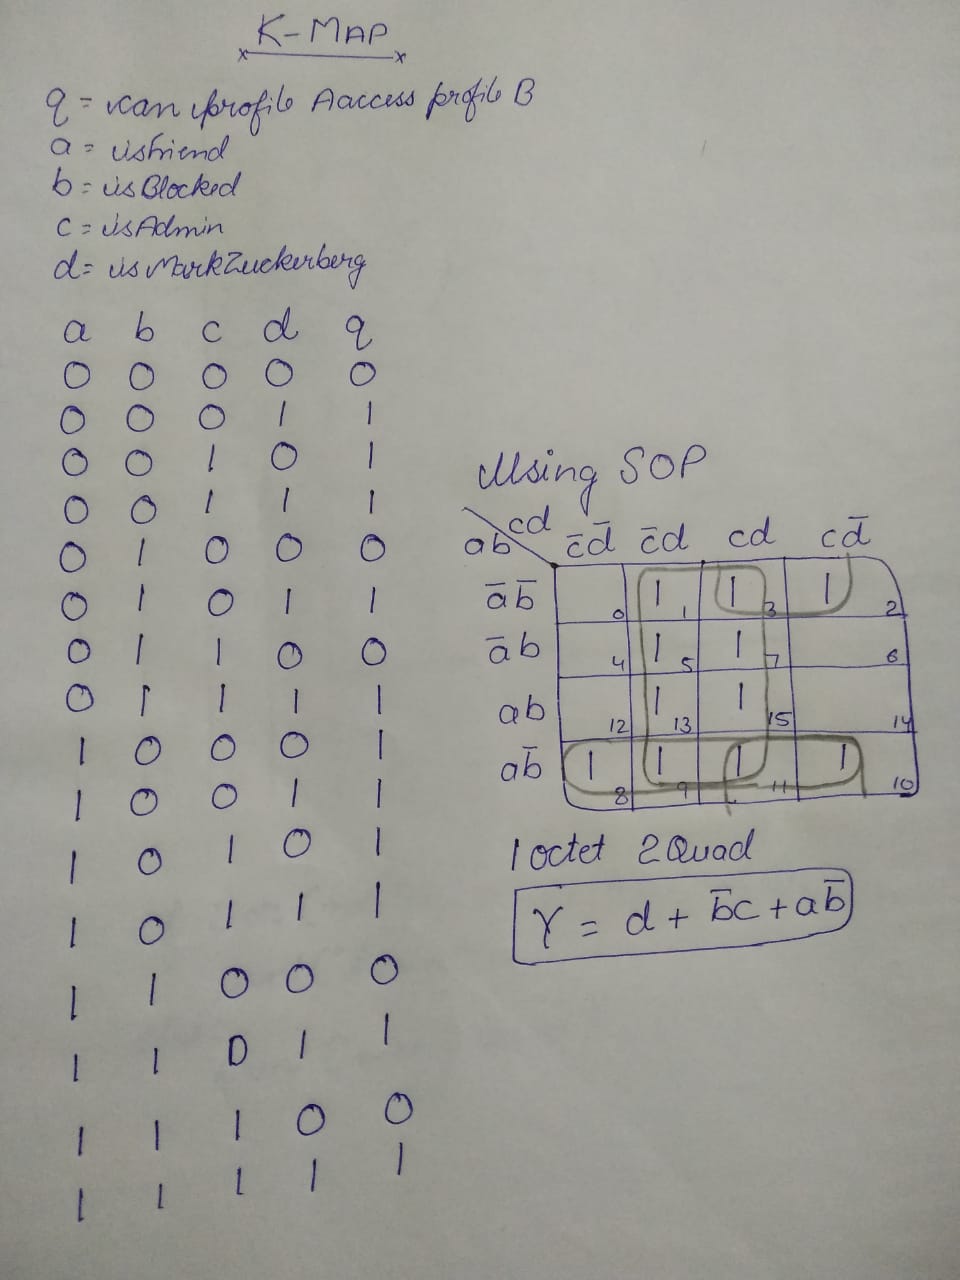 K-MAP
q = can profile Aaccess profile B
a = isfriend
b = isBlocked
c = isAdmin
d= isMarkZuckerberg
a b c d q
0 0 0 0 0
0 0 0 1 1
0 0 1 0 1
0 0 1 1 1
0 1 0 0 0
0 1 0 1 1
0 1 1 0 0
0 1 1 1 1
1 0 0 0 1
1 0 0 1 1
1 0 1 0 1
1 0 1 1 1
1 1 0 0 0
1 1 0 1 1
1 1 1 0 0
1 1 1 1 1
Using SOP
ab cd c̄d̄ c̄d cd cd̄
āb̄ 0 1 1 1 3 1 2
āb 4 1 5 1 7 6
ab 12 1 13 1 15 14
ab̄ 1 8 1 9 1 11 1 10
1 octet 2 Quad
Y = d + b̄c + ab̄